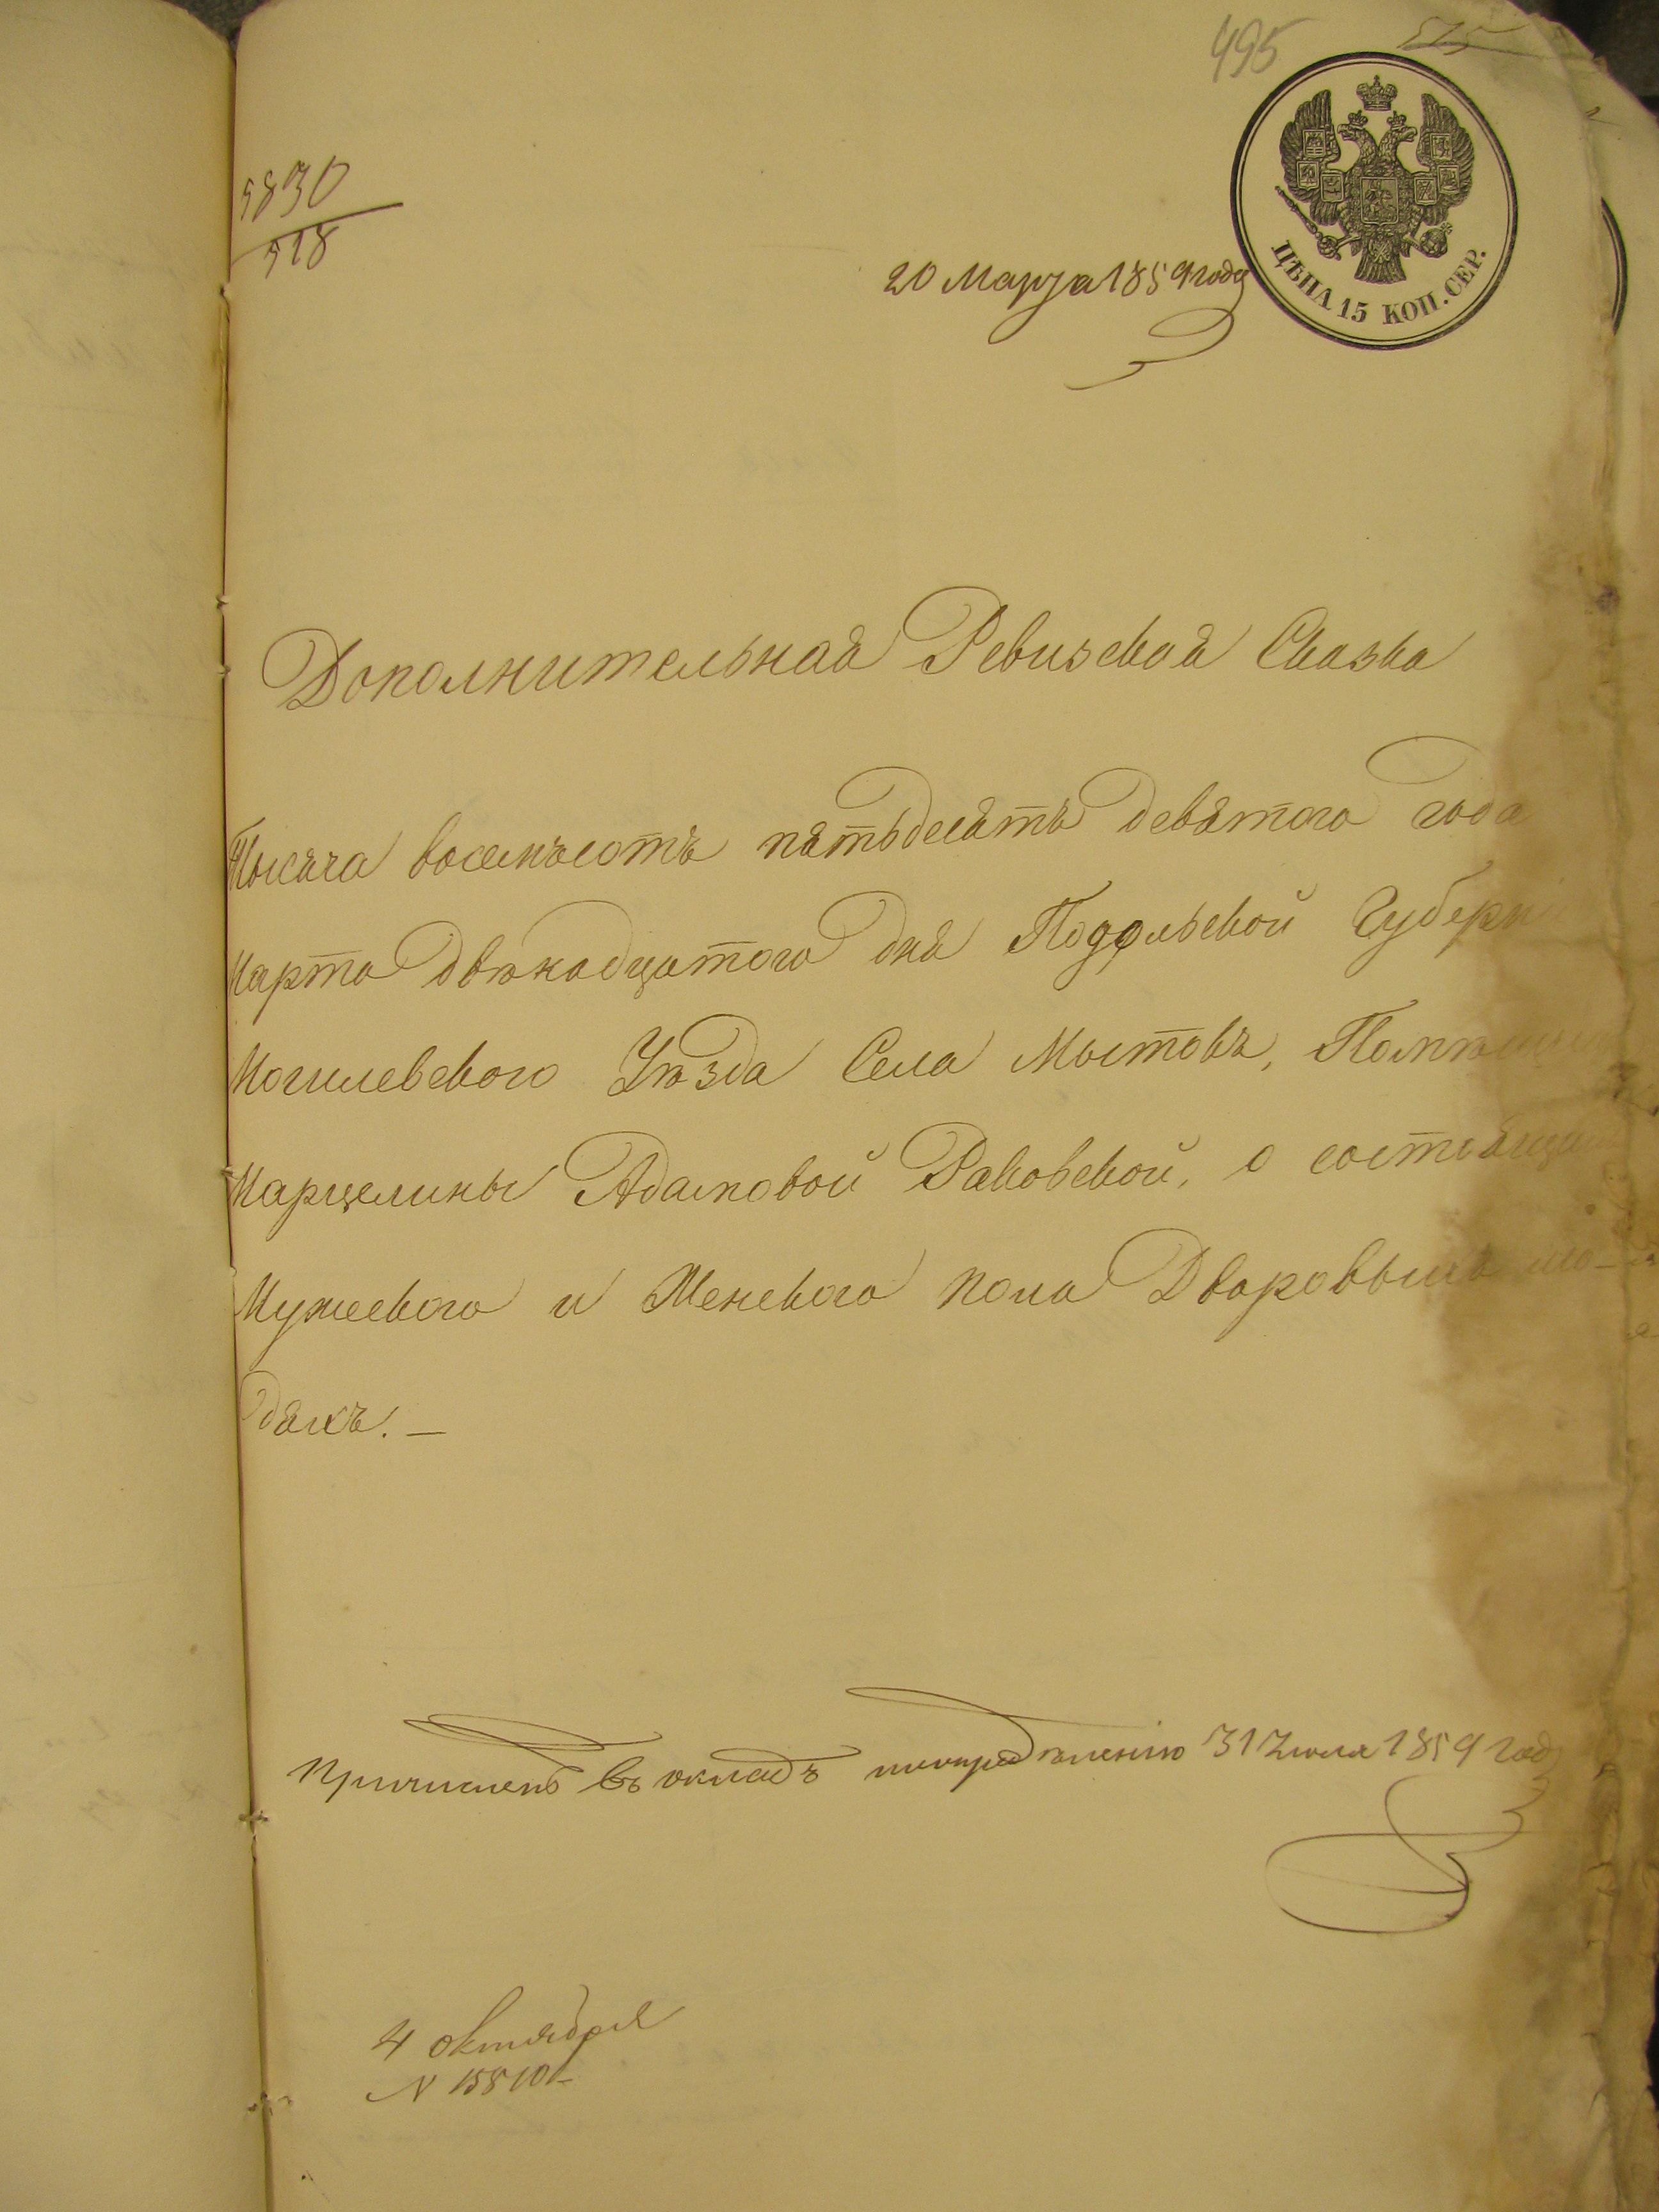 495
515
5830
518
20 Марта 1859 года
ЦѢНА 15 КОП. СЕР.
Дополнительная Ревизская Сказка
Тысяча восемьсотъ пятьдесятъ девятого года
Марта двѣнадцатого дня Подольской Губерніи
Могилевского Уѣзда Села Мытовъ, Помѣщицы
Марцелины Адамовой Раковской, о состоящихъ
Мужеского и Женского пола Дворовыхъ лю-
дяхъ. —
Причислено въ окладъ по опредѣленію 31 Іюля 1859 года
4 октября
N 15810